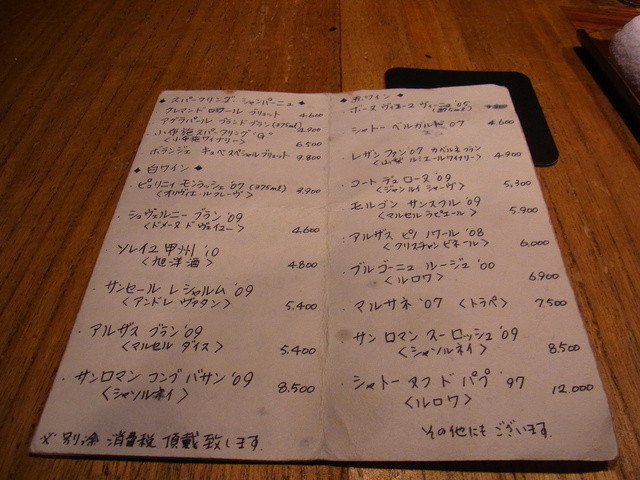 ◆ スパークリング シャンパーニュ ◆
・クレマンド ロワール ブリュット 4.600
・アグラパール ブランドブラン(375ml) 4.900
・小布施 スパークリング "G"
<小布施ワイナリー> 6.500
・ボランジェ キュベスペシャルブリュット 9.800
◆ 白ワイン ◆
・ピュリニィ モンラッシェ '07 (375ml)
<オリヴィエ.ルフレーヴ> 3.900
・シュヴェルニー ブラン '09
<ドメーヌ ドヴェイユー> 4.600
・ソレイユ 甲州 '10
<旭洋酒> 4.800
・サンセール レ シャルム '09
<アンドレ ヴァタン> 5.400
・アルザス ブラン '09
<マルセル ダイス> 5.400
・サンロマン コンブ バザン '09
<シャソルネイ> 8.500
※別途 消費税 頂戴致します.
◆ 赤ワイン ◆
・ボーヌ ヴィエーユ ヴィーニュ '05
(375ml)
・シャトー ベルガル '07 4.600
・レザンファン '07 カベルネフラン
<山梨 ルミエールワイナリー> 4.900
・コート デュ ローヌ '09
<ジャン ルイ シャーヴ> 5.300
・モルゴン サンスフル '09
<マルセル ラピエール> 5.900
・アルザス ピノ ノワール '08
<クリスチャン ビネール> 6.000
・ブルゴーニュ ルージュ '00
<ルロワ> 6.900
・マルサネ '07 <トラペ> 7.500
・サン ロマン スー ロッシュ '09
<シャソルネイ> 8.500
・シャトー ヌフ ド パプ '97
<ルロワ> 12.000
その他にもございます.